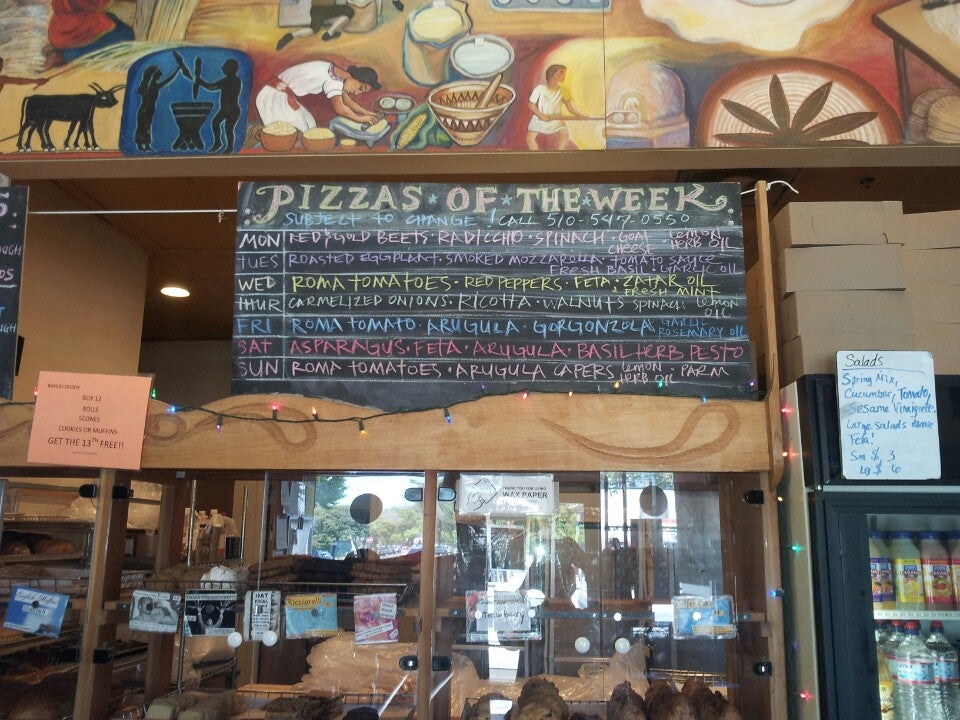 PIZZAS OF THE WEEK
SUBJECT TO CHANGE! CALL 510-547-0550
MON RED & GOLD BEETS · RADICCHIO · SPINACH · GOAT CHEESE · LEMON HERB OIL
TUES ROASTED EGGPLANT · SMOKED MOZZAROLLA · TOMATO SAUCE FRESH BASIL · GARLIC OIL
WED ROMA TOMATOES · RED PEPPERS · FETA · ZATAR OIL FRESH MINT
THUR CARMELIZED ONIONS · RICOTTA · WALNUTS SPINACH LEMON OIL
FRI ROMA TOMATO · ARUGULA · GORGONZOLA · GARLIC ROSEMARY OIL
SAT ASPARAGUS · FETA · ARUGULA · BASIL HERB PESTO
SUN ROMA TOMATOES · ARUGULA CAPERS LEMON HERB OIL · PARM
BAKERS DOZEN:
BUY 12
ROLLS
SCONES
COOKIES OR MUFFINS
GET THE 13TH FREE!!
Salads
Spring Mix,
Cucumber, Tomato,
Sesame Vinaigrette.
Large salads have
Feta!
Sm $ 3
Lg $ 6
THANK YOU FOR USING
WAX PAPER
Ricciarelli
OAT